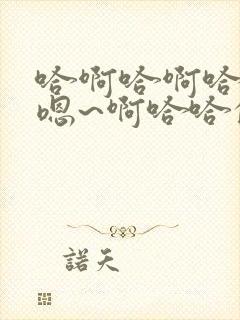 哈啊哈啊哈
嗯~啊哈哈
諾天